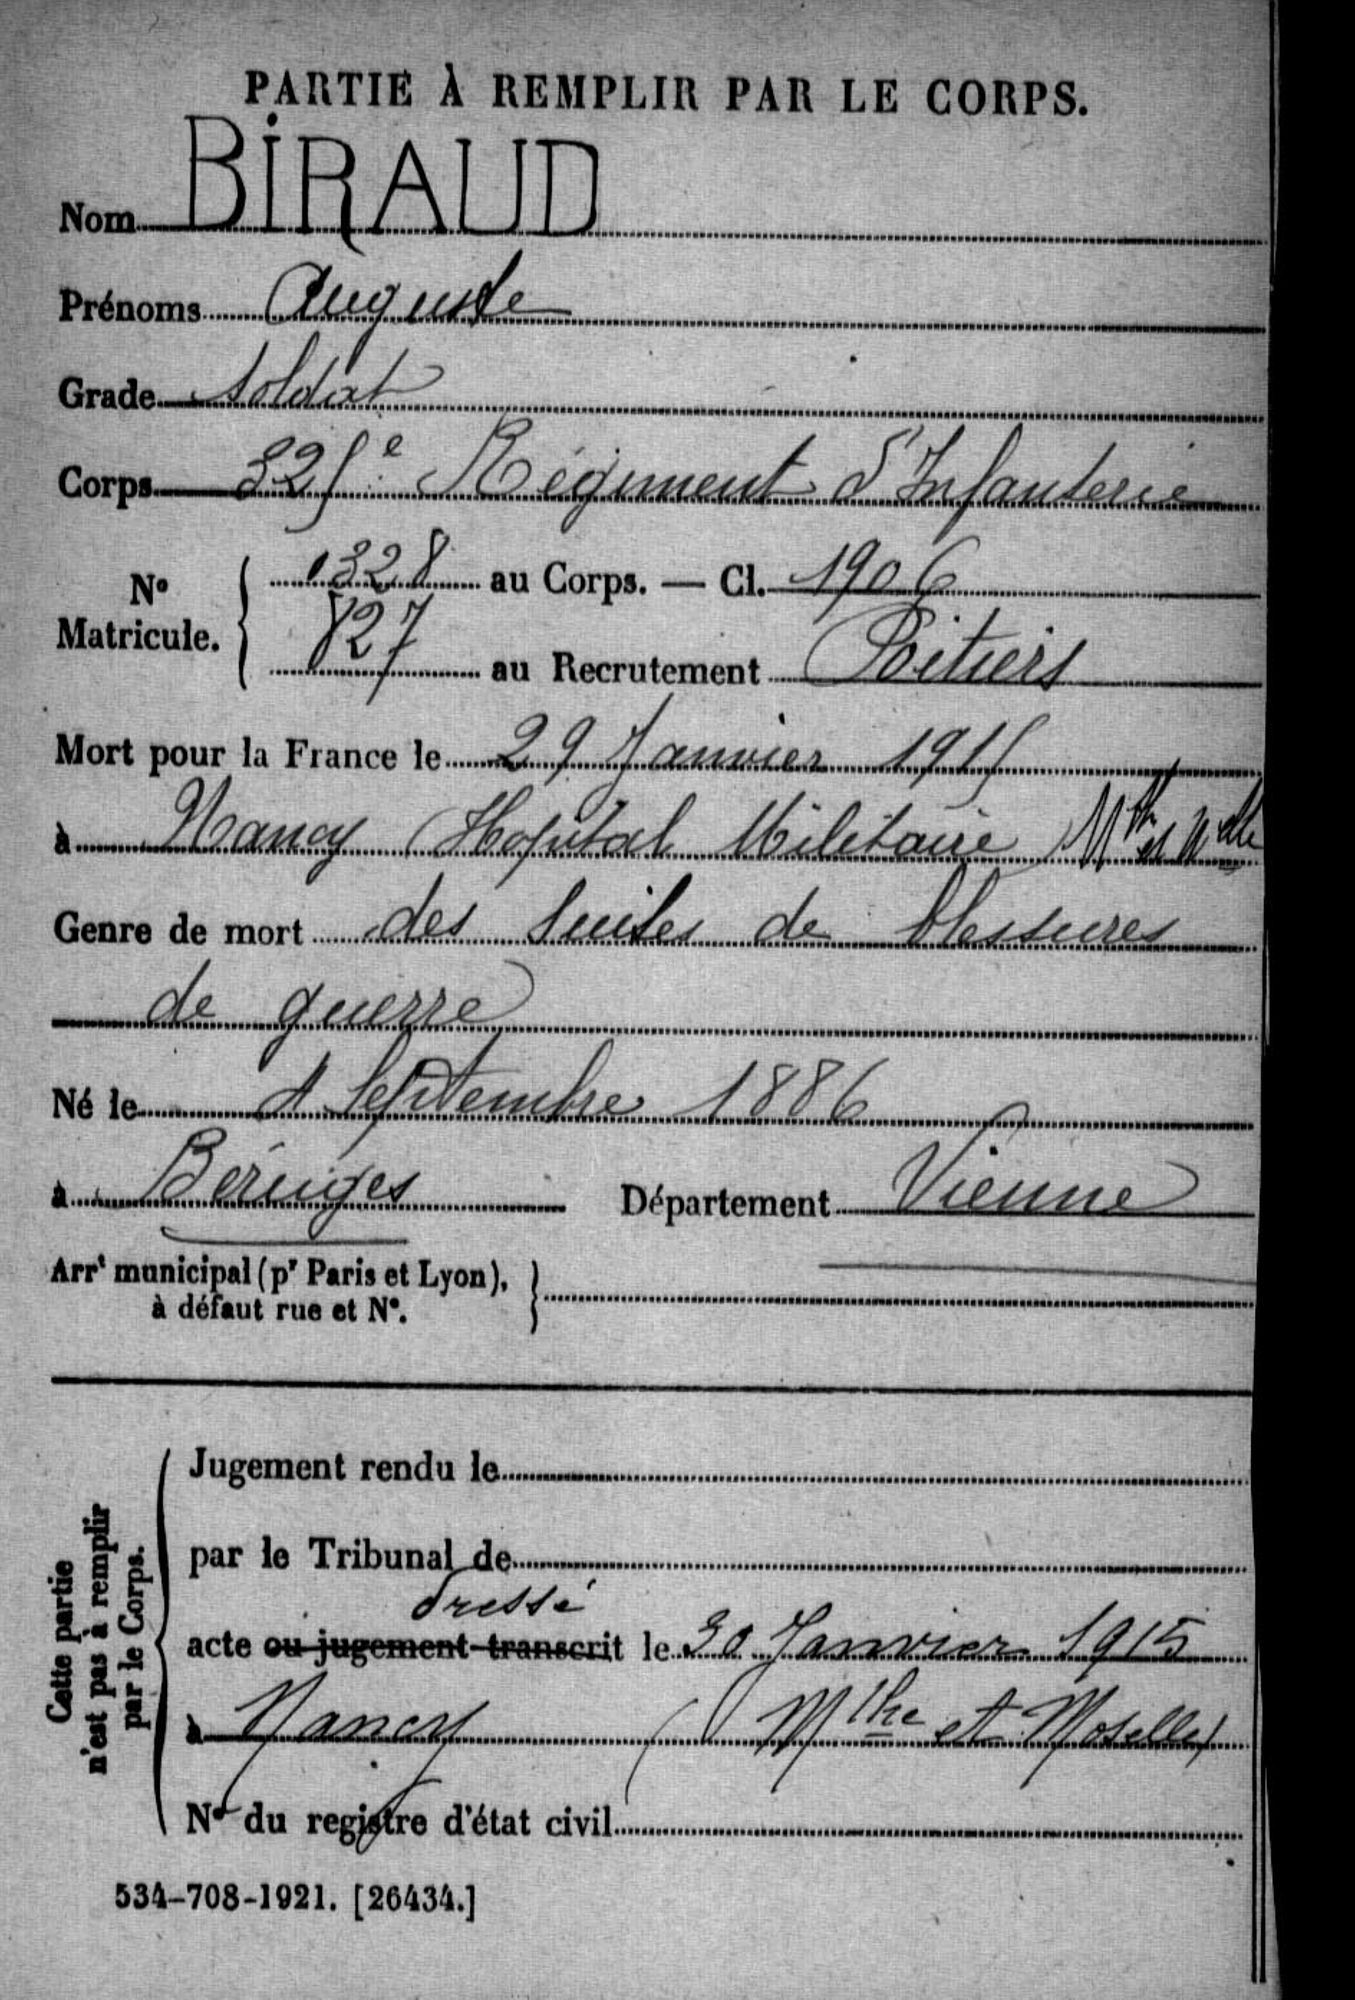 PARTIE À REMPLIR PAR LE CORPS.
Nom BIRAUD
Prénoms Auguste
Grade soldat
Corps 325e Régiment d'Infanterie
No Matricule. { 0328 au Corps. — Cl. 1906
827 au Recrutement Poitiers
Mort pour la France le 29 Janvier 1915
à Nancy (Hopital Militaire) Mthe et Melle
Genre de mort des suites de blessures
de guerre
Né le 4 Septembre 1886
à Béruges Département Vienne
Arrt municipal (pr Paris et Lyon), }
à défaut rue et No.
Cette partie
n'est pas à remplir
par le Corps.
Jugement rendu le
par le Tribunal de
dressé
acte ou jugement transcrit le 30 Janvier 1915
à Nancy (Mthe et Moselle)
No du registre d'état civil
534-708-1921. [26434.]